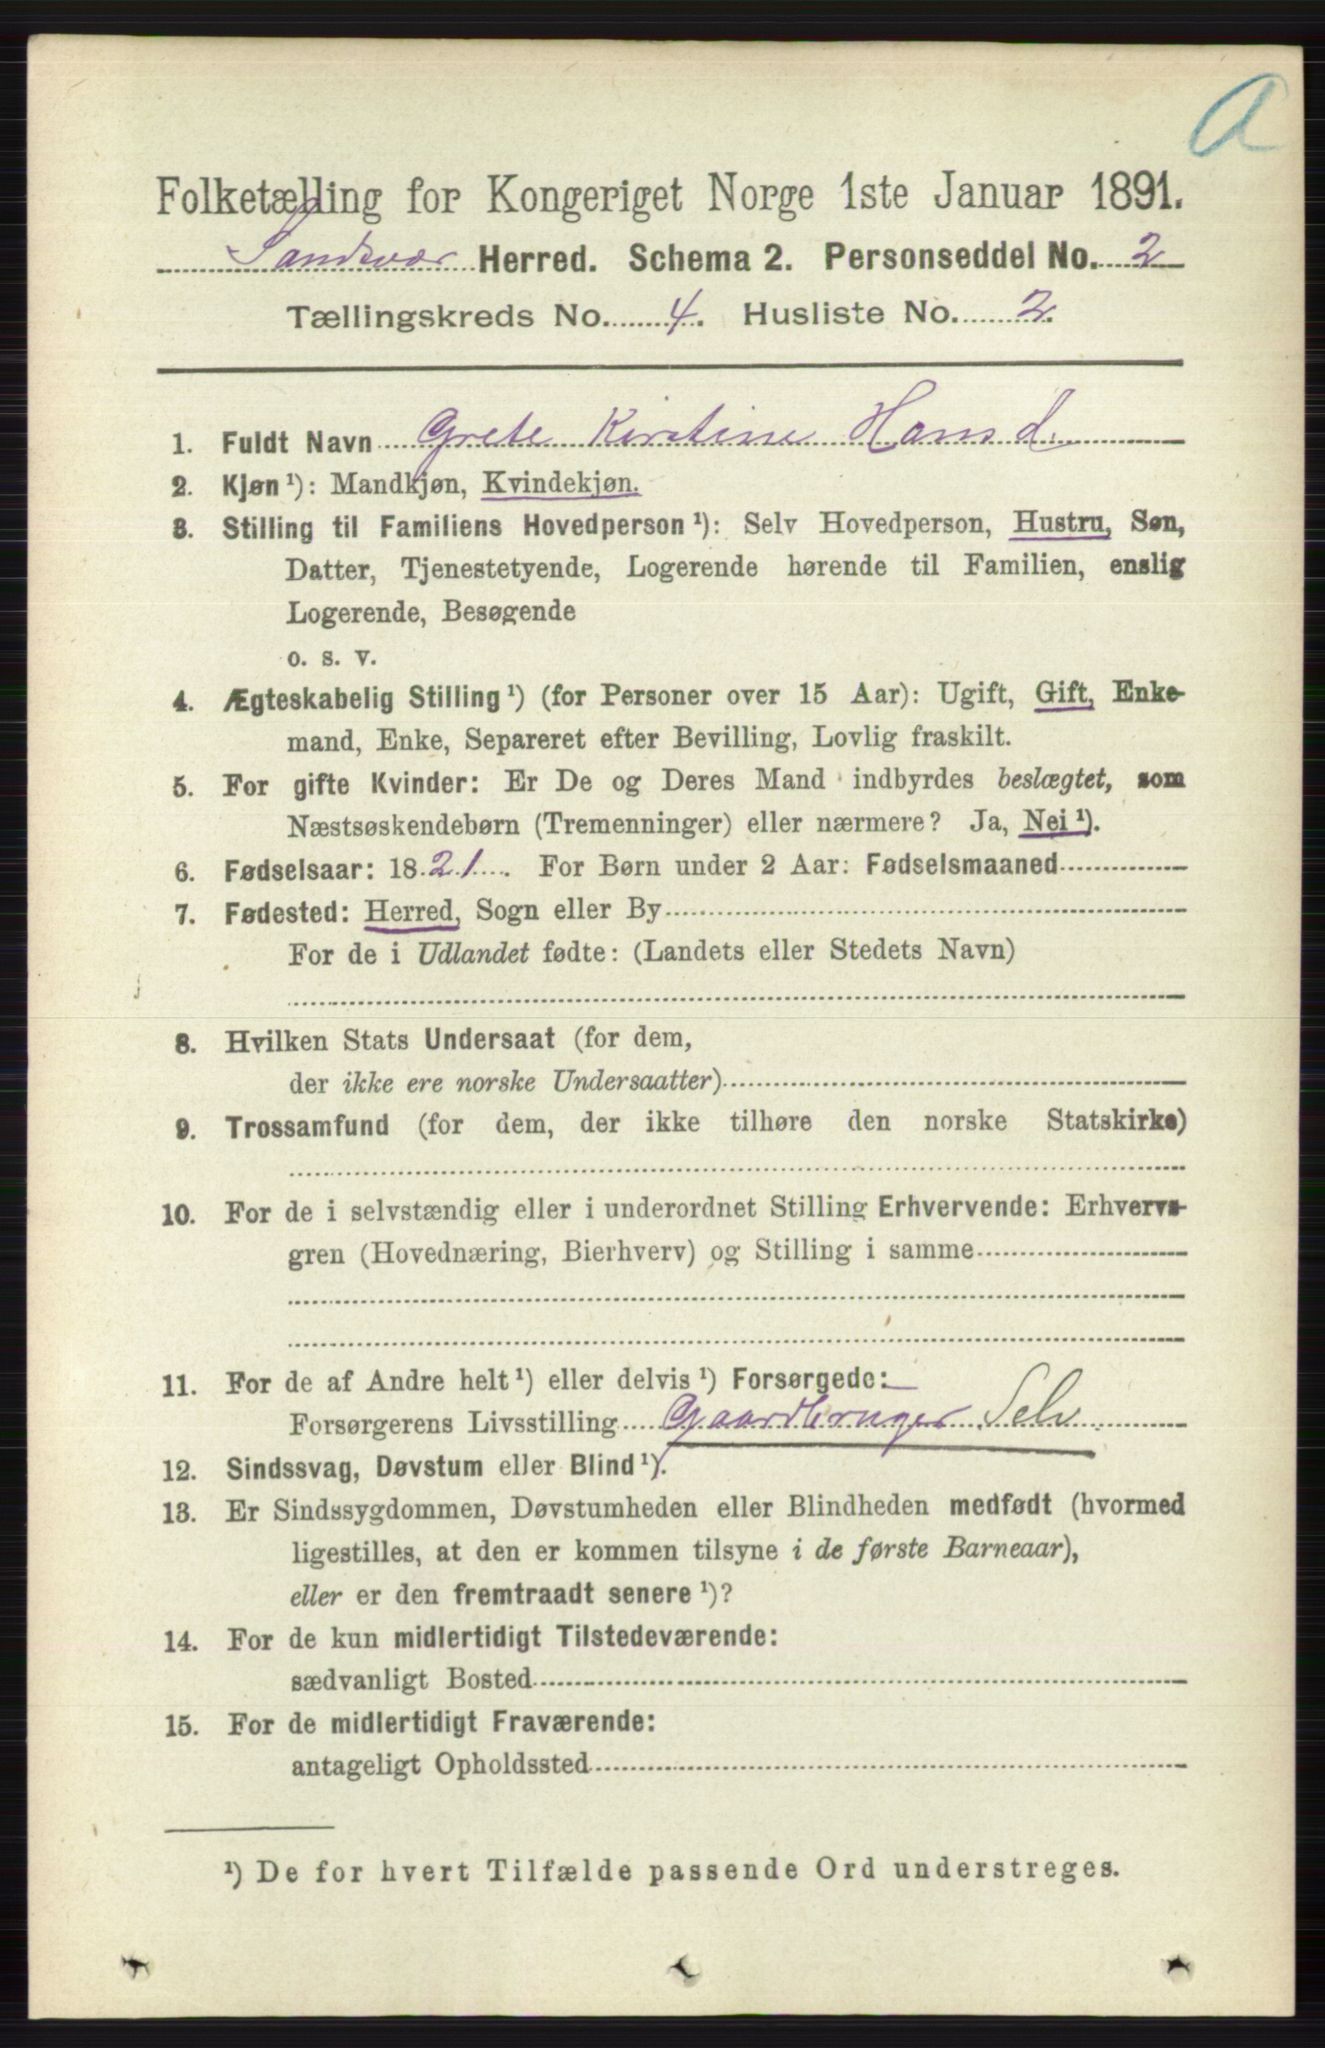 A
Folketælling for Kongeriget Norge 1ste Januar 1891.
Sandsvær Herred. Schema 2. Personseddel No. 2
Tællingskreds No. 4. Husliste No. 2.
1. Fuldt Navn Grete Kirstine Hansd.
2. Kjøn ¹): Mandkjøn, Kvindekjøn.
3. Stilling til Familiens Hovedperson ¹): Selv Hovedperson, Hustru, Søn,
Datter, Tjenestetyende, Logerende hørende til Familien, enslig
Logerende, Besøgende
o. s. v.
4. Ægteskabelig Stilling ¹) (for Personer over 15 Aar): Ugift, Gift, Enke-
mand, Enke, Separeret efter Bevilling, Lovlig fraskilt.
5. For gifte Kvinder: Er De og Deres Mand indbyrdes beslægtet, som
Næstsøskendebørn (Tremenninger) eller nærmere? Ja, Nei ¹).
6. Fødselsaar: 1821. For Børn under 2 Aar: Fødselsmaaned
7. Fødested: Herred, Sogn eller By
For de i Udlandet fødte: (Landets eller Stedets Navn)
8. Hvilken Stats Undersaat (for dem,
der ikke ere norske Undersaatter)
9. Trossamfund (for dem, der ikke tilhøre den norske Statskirke)
10. For de i selvstændig eller i underordnet Stilling Erhvervende: Erhvervs-
gren (Hovednæring, Bierhverv) og Stilling i samme
11. For de af Andre helt ¹) eller delvis ¹) Forsørgede:
Forsørgerens Livsstilling Gaardbruger Selv.
12. Sindssvag, Døvstum eller Blind ¹).
13. Er Sindssygdommen, Døvstumheden eller Blindheden medfødt (hvormed
ligestilles, at den er kommen tilsyne i de første Barneaar),
eller er den fremtraadt senere ¹)?
14. For de kun midlertidigt Tilstedeværende:
sædvanligt Bosted
15. For de midlertidigt Fraværende:
antageligt Opholdssted
¹) De for hvert Tilfælde passende Ord understreges.